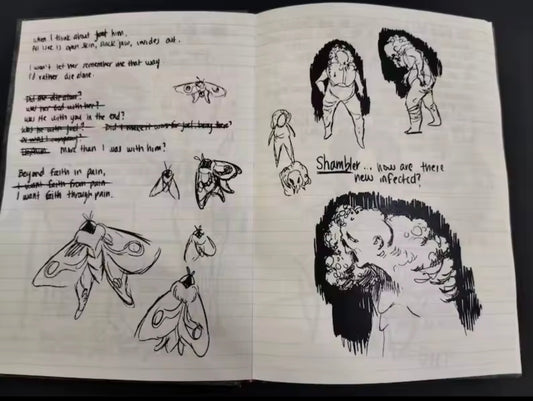 when I think about him.
All I see is open skin, slack jaw, candles out.
I won't let her remember me that way
I'd rather die alone.
Did she die alone?
Was her dad with her?
Was He with you in the end?
Was he with Joel? Did I make it worse for just being there?
More than I was with him?
Beyond faith in pain,
I want faith from pain
I want faith through pain.
Shambler... how are there
new infected?